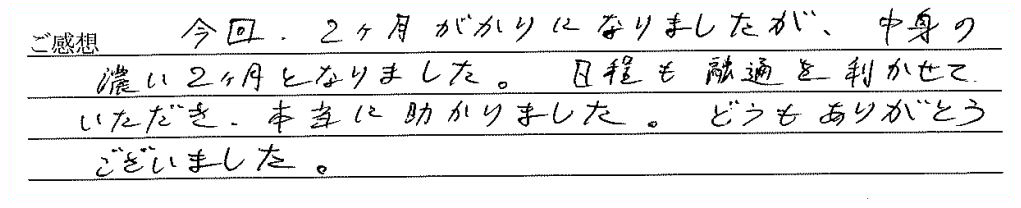 ご感想 今回、2ヶ月がかりになりましたが、中身の
濃い2ヶ月となりました。日程も融通を利かせて
いただき、本当に助かりました。どうもありがとう
ございました。